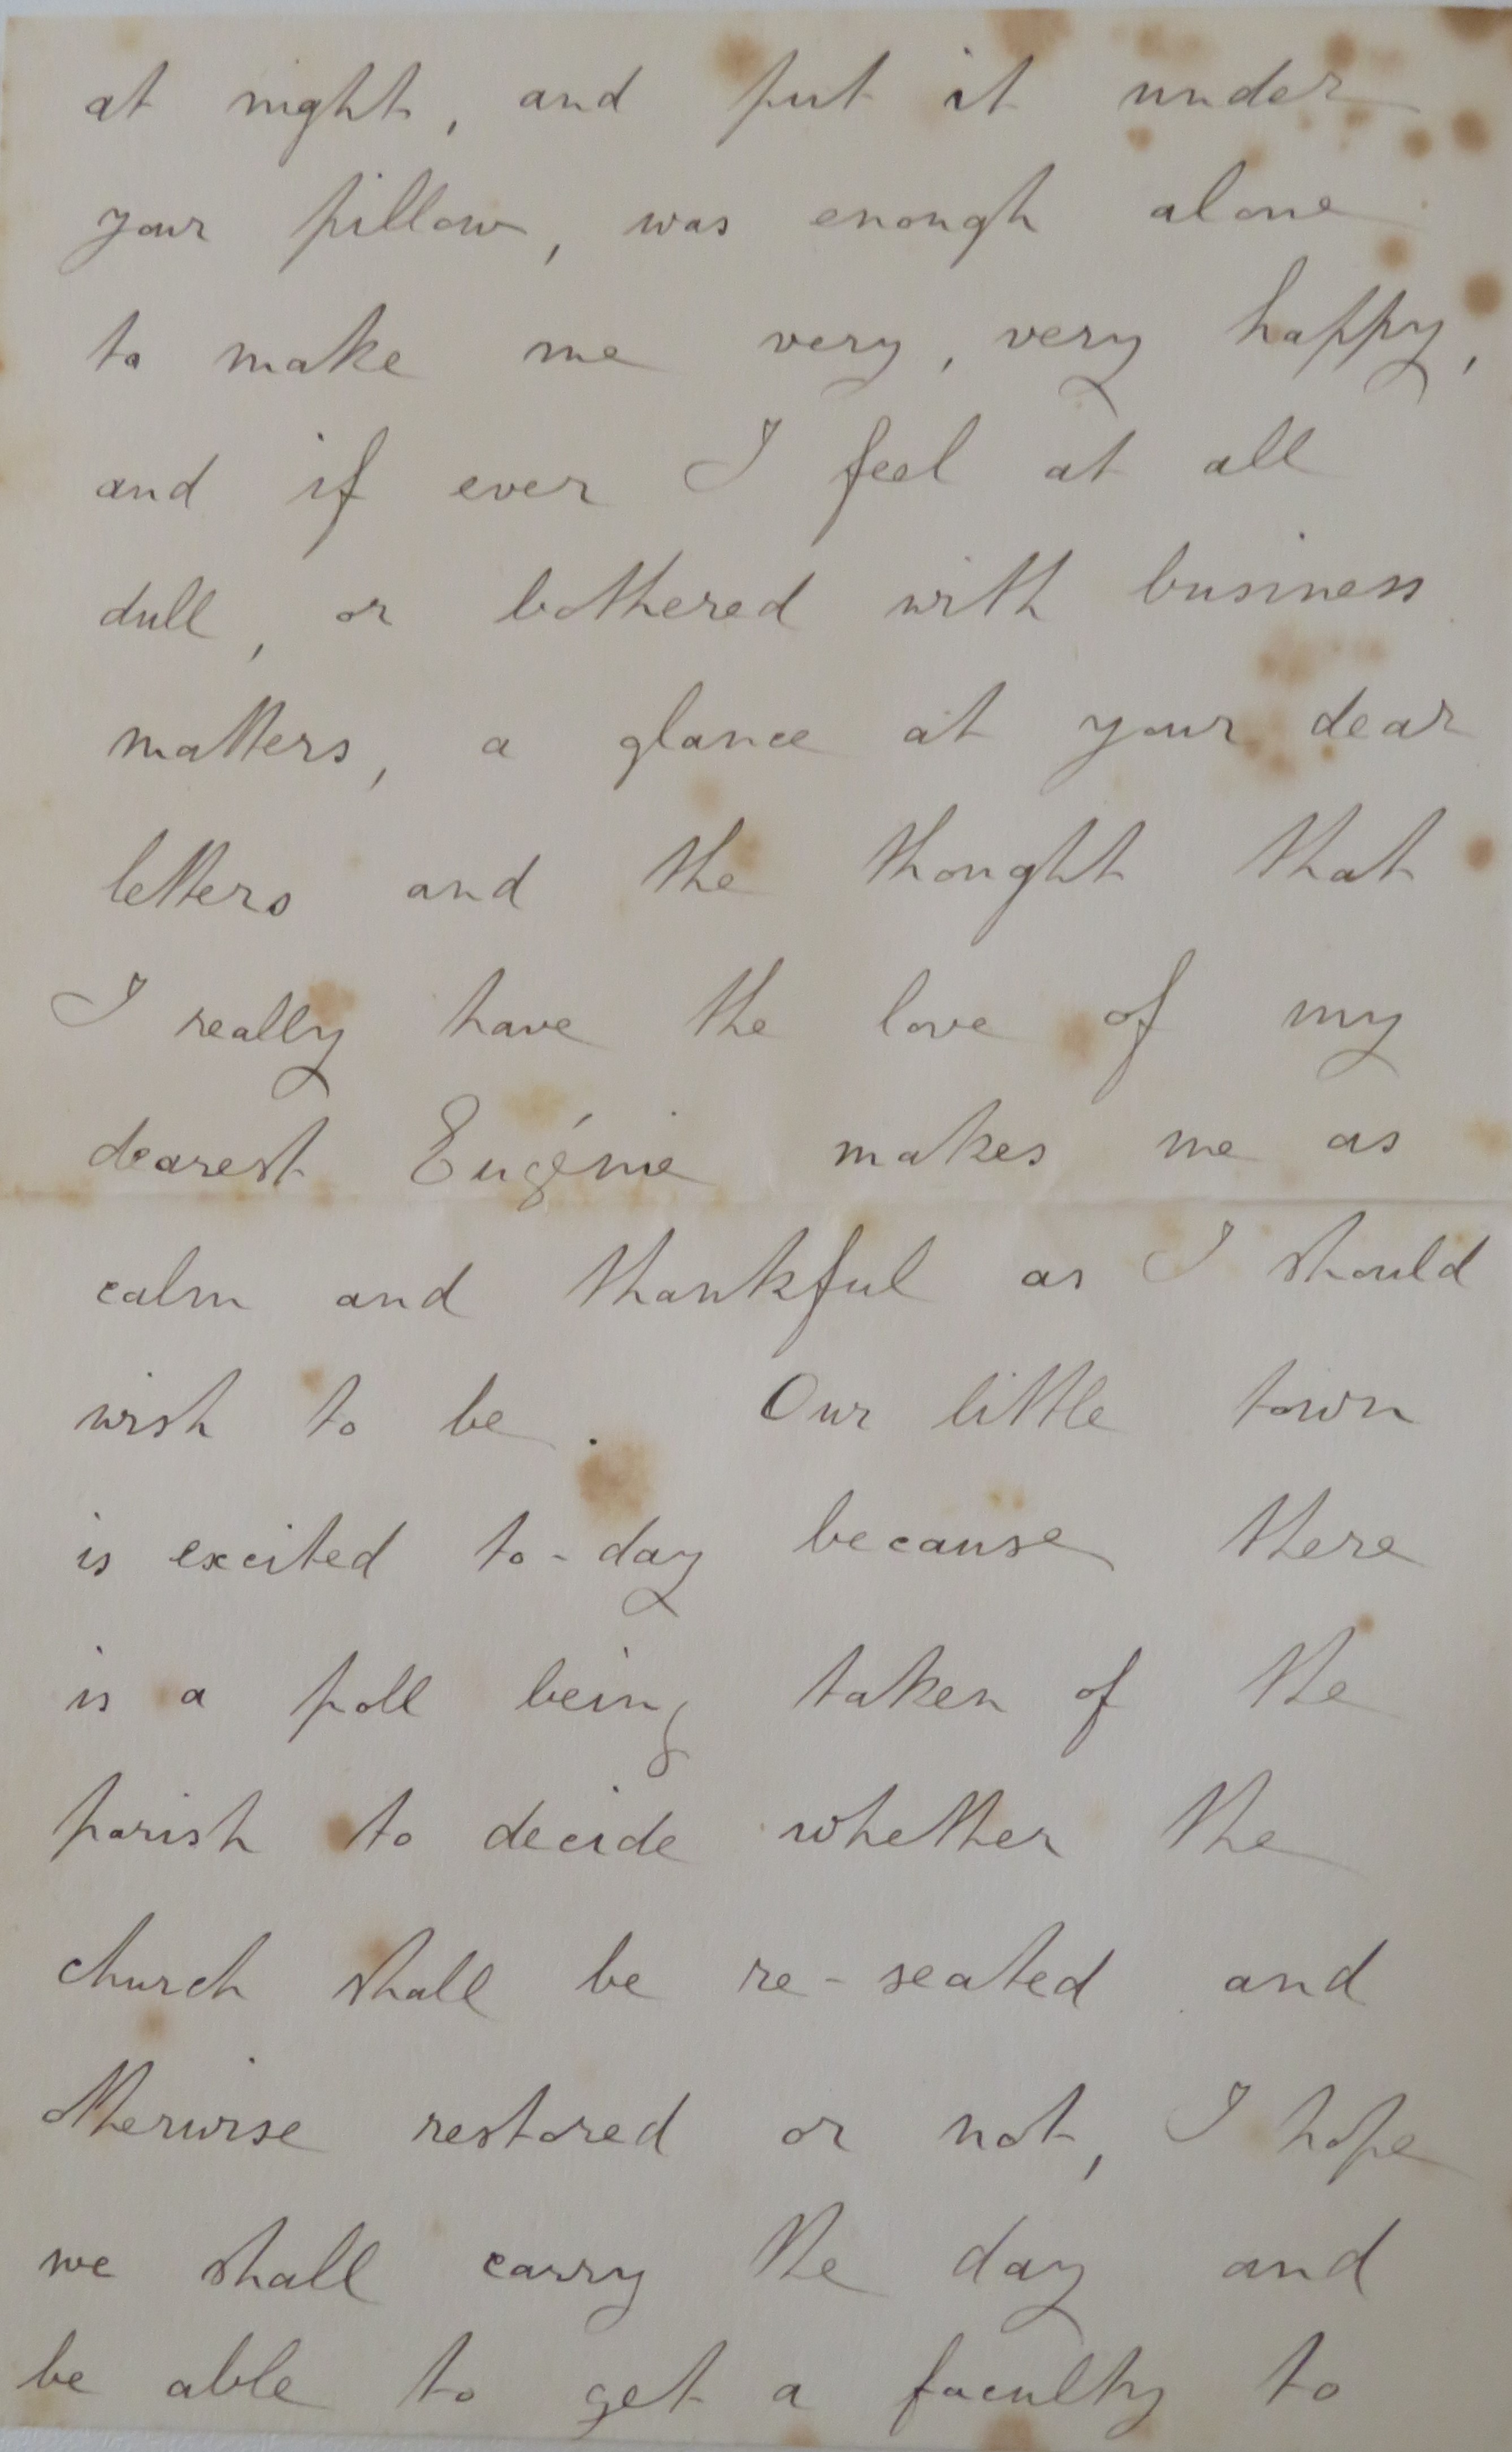 at night, and put it under
your pillow, was enough alone
to make me very, very happy,
and if ever I feel at all
dull, or bothered with business
matters, a glance at your dear
letters and the thought that
I really have the love of my
dearest Eugénie makes me as
calm and thankful as I should
wish to be. Our little town
is excited to-day because there
is a poll being taken of the
parish to decide whether the
church shall be re-seated and
otherwise restored or not, I hope
we shall carry the day and
be able to get a faculty to